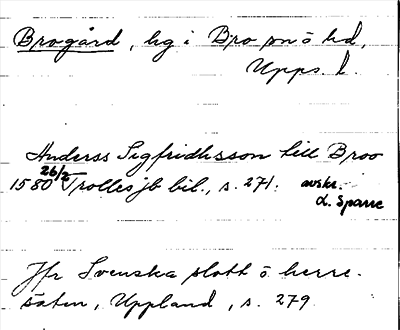 Brogård, hg i Bro sn o hd,
Upps. l.
Anderss Sigfridhsson till Broo
1580 26/2 Trolles jb bil., s. 271. avskr.
d. Sparre
Jfr Svenska slott o herre-
säten, Uppland, s. 279